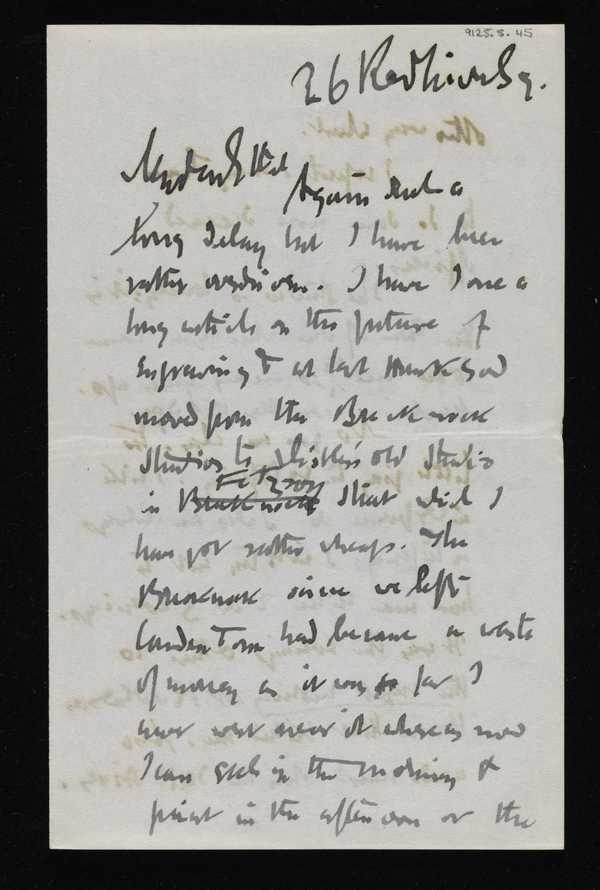 9125.8.45
26 Redcliffe Sq.
My dear Ethel
Again such a
long delay but I have been
rather overdriven. I have done a
long article on the future of
Engraving & at last thank God
moved from the Brecknock
studios to Sickert's old studio
Fitzroy
in Brecknock Street which I
have got rather cheap. The
Brecknock since we left
Camden Town had become a waste
of money as it was so far I
never went near it whereas now
I can etch in the morning &
paint in the afternoon or the